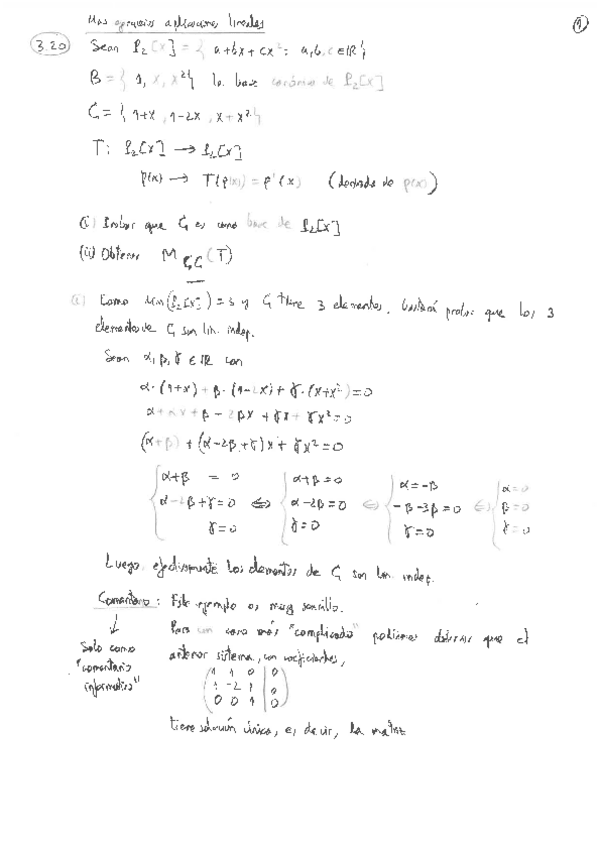 Más ejercicios aplicaciones lineales
①
3.20 Sean P₂[x] = { a+bx+cx² : a,b,c ∈ ℝ }
B = { 1, x, x² } la base canónica de P₂[x]
C = { 1+x, 1-2x, x+x² }
T: P₂[x] → P₂[x]
p(x) → T(p(x)) = p'(x) (derivada de p(x))
(i) Probar que C es como base de P₂[x]
(ii) Obtener M_CC(T)
(i) Como dim(P₂[x]) = 3 y C tiene 3 elementos, bastará probar que los 3
elementos de C son lin. indep.
Sean α, β, γ ∈ ℝ con
α·(1+x) + β·(1-2x) + γ·(x+x²) = 0
α + αx + β - 2βx + γx + γx² = 0
(α+β) + (α-2β+γ)x + γx² = 0
{ α+β = 0 { α+β = 0 { α = -β { α = 0
{ α-2β+γ = 0 ⇔ { α-2β = 0 ⇔ { -β-3β = 0 ⇔ { β = 0
{ γ = 0 { γ = 0 { γ = 0 { γ = 0
Luego, efectivamente los elementos de C son lin. indep.
Comentario: Este ejemplo es muy sencillo.
↓ Para un caso más "complicado" podríamos observar que el
Solo como anterior sistema, con coeficientes,
"comentario ( 1 1 0 | 0
informativo" 1 -2 1 | 0
0 0 1 | 0 )
tiene solución única, es decir, la matriz